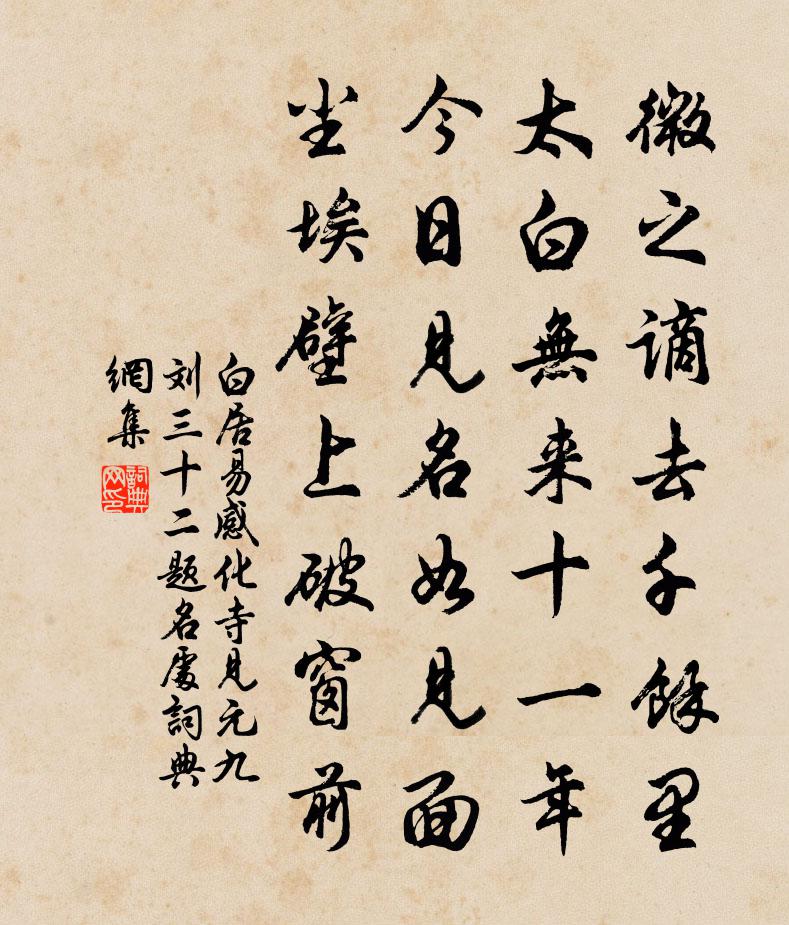 微之谪去千餘里
太白無来十一年
今日見名如見面
尘埃壁上破窗前
白居易感化寺見元九
刘三十二题名處詞典
網集
詞典
网印